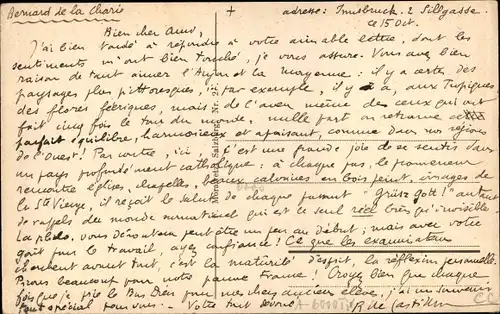 Bernard de la Charie
adresse: Innsbruck. 2 Sillgasse
ce 15 Oct.
Bien cher ami,
J'ai bien tardé à répondre à votre aimable lettre, dont les
sentiments m'ont bien touché, je vous assure. Vous avez bien
raison de tant aimer l'Anjou et la Mayenne: il y a certes des
paysages plus pittoresques, par exemple, il y a, aux Tropiques,
des flores féeriques, mais de l'aveu même des ceux qui ont
fait cinq fois le tour du monde, nulle part on retrouve cet
parfait équilibre, harmonieux et apaisant, comme dans nos régions
de l'Ouest! Par contre, ici, c'est une grande joie de se sentir dans
un pays profondément catholique: à chaque pas, le promeneur
rencontre églises, chapelles, beaux calvaires en bois peint, images de
la Ste Vierge, il reçoit le salut de chaque passant "Grüss Gott!" autant
de rappels du monde surnaturel qui est ce seul réel bien qu'invisible
La philo, vous déroutera peut être un peu au début; mais avec votre
goût pour le travail, ayez confiance! Ce que les examinateurs
cherchent avant tout, c'est la maturité d'esprit, la réflexion personnelle.
Prions beaucoup pour notre pauvre France! Croyez bien que chaque
fois que je prie le Bon Dieu pour mes chers anciens élèves, j'ai un souvenir
tout spécial pour vous. - Votre tout dévoué
R de Castill